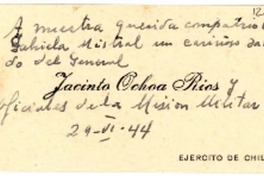 12
A nuestra querida compatrio
Gabriela Mistral un cariñoso salu
do del General
Jacinto Ochoa Rios y
oficiales de la Mision Militar
29-VI-44
EJERCITO DE CHIL